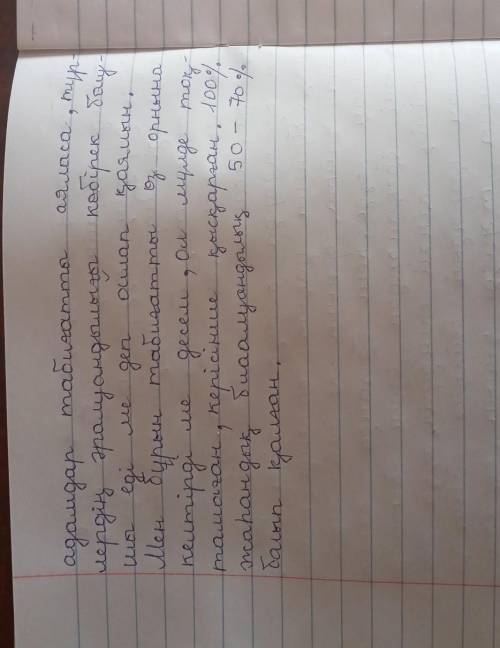 адамдар табиғатты аяласа, түр-
лердің әралуандылығы көбірек бау-
шы еді ме деп ойлап қаямын.
Мен бұрын табиғатты өз орнына
келтірді ме десем, ол мүлде тоқ-
тамаған, керісінше қысқарған. 100%
жаһандық биоалуандылық 50 - 70%
баып қалған.